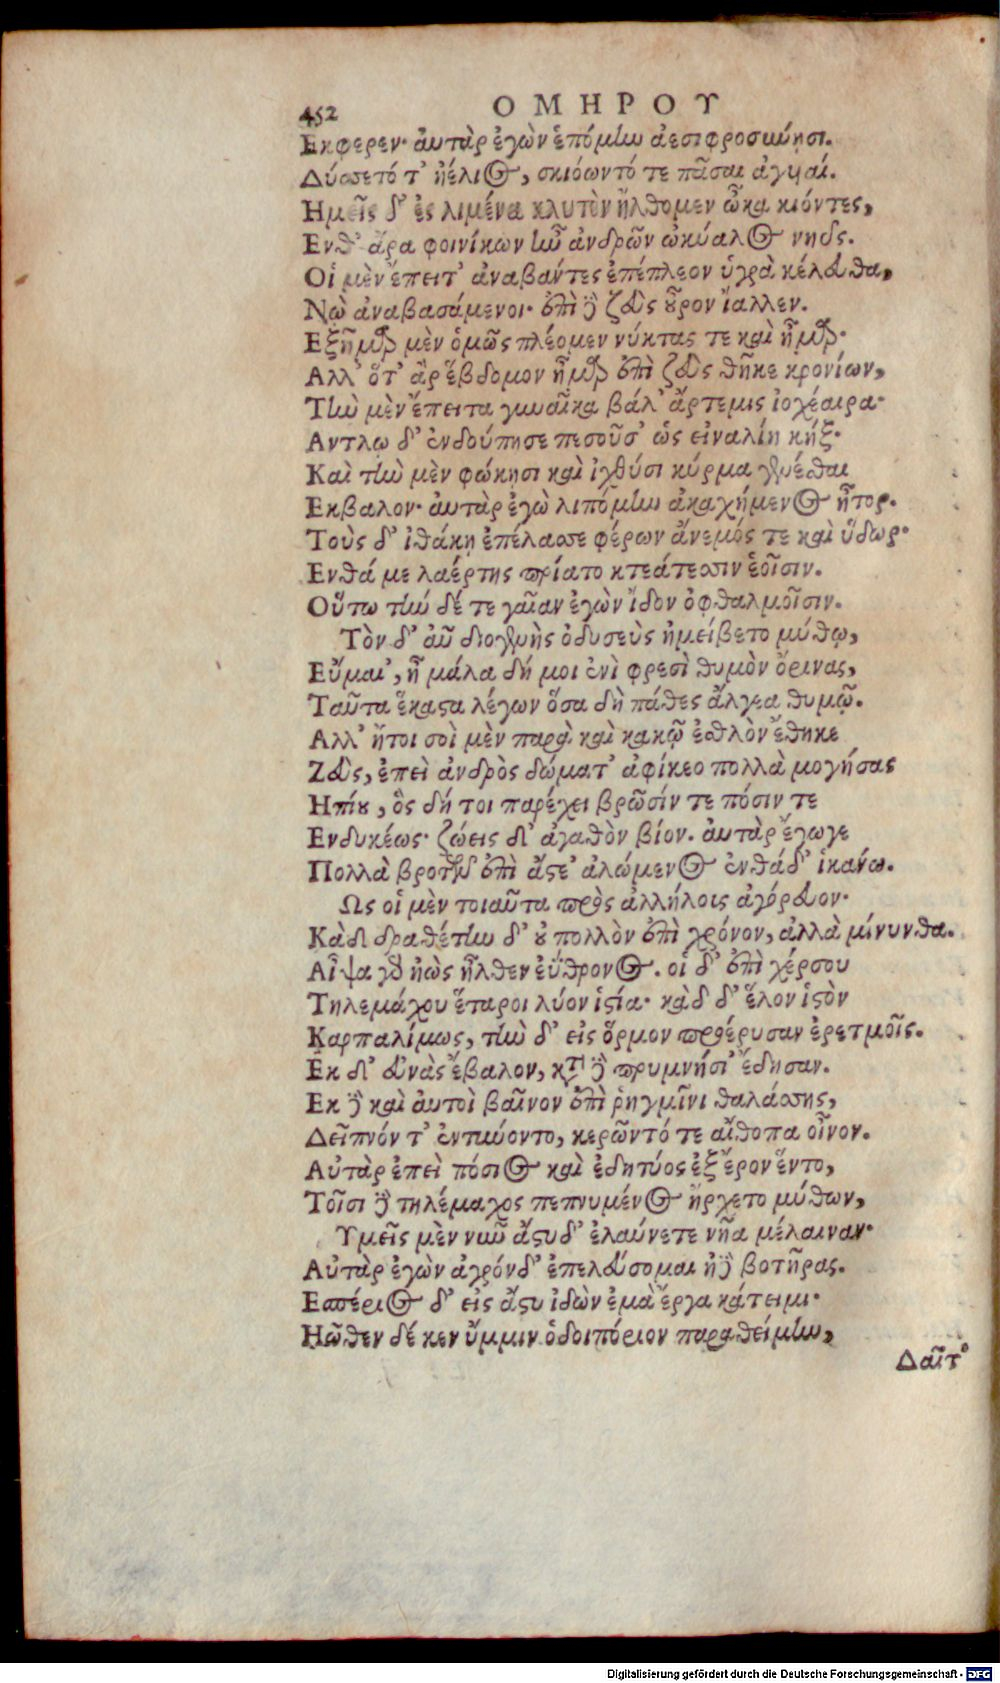 452 ΟΜΗΡΟΥ
Εκφερεν· ἀυτὰρ ἐγὼν ἑπόμίω ἀεσιφροσιώησι.
Δύσσετό τ' ἠέλιος, σκιόωντό τε πᾶσαι ἀγυιαί.
Ημεῖς δ' ἐς λιμένα κλυτὸν ἤλθομεν ὦκα κιόντες,
Ενθ' ἄρα φοινίκων ἰῶ ἀνδρῶν ὠκύαλος νηῦς.
Οἱ μὲν ἔπειτ' ἀναβαντες ἐπέπλεον ὑγρὰ κέλευθα,
Νῲ ἀναβασάμενοι· ἐπὶ δὲ ζεὺς οὖρον ἴαλλεν.
Εξῆμαρ μὲν ὁμῶς πλέομεν νύκτας τε καὶ ἦμαρ·
Αλλ' ὅτ' ἂρ ἕβδομον ἦμαρ ἐπὶ ζεὺς θῆκε κρονίων,
Τὶω μὲν ἔπειτα γιυαῖκα βάλ' ἄρτεμις ἰοχέαιρα·
Αντλῳ δ' ἐνδούπησε πεσοῦσ' ὡς εἰναλίη κήξ·
Καὶ τὶω μὲν φώκησι καὶ ἰχθύσι κύρμα γενέσθαι
Εκβαλον· ἀυτὰρ ἐγὼ λιπόμίω ἀκαχήμενος ἦτορ.
Τοὺς δ' ἰθάκῃ ἐπέλασσε φέρων ἄνεμός τε καὶ ὕδωρ·
Ενθά με λαέρτης πρίατο κτεάτεσσιν ἑοῖσιν.
Οὕτω τίω δέ τε γαῖαν ἐγὼν ἴδον ὀφθαλμοῖσιν.
Τὸν δ' ἀῦ διογενὴς ὀδυσεὺς ἠμείβετο μύθῳ,
Εὔμαι', ἦ μάλα δή μοι ἐνὶ φρεσὶ θυμὸν ὄρινας,
Ταῦτα ἕκαστα λέγων ὅσα δὴ πάθες ἄλγεα θυμῷ.
Αλλ' ἤτοι σοὶ μὲν παρὰ καὶ κακῷ ἐσθλὸν ἔθηκε
Ζεὺς, ἐπεὶ ἀνδρὸς δώματ' ἀφίκεο πολλὰ μογήσας
Ηπίου, ὃς δή τοι παρέχει βρῶσίν τε πόσιν τε
Ενδυκέως· ζώεις δ' ἀγαθὸν βίον. ἀυτὰρ ἔγωγε
Πολλὰ βροτῶν ἐπὶ ἄστε' ἀλώμενος ἐνθάδ' ἱκανω.
Ως οἱ μὲν τοιαῦτα πρὸς ἀλλήλοις ἀγόρευον·
Κὰδ δραθέτίω δ' οὐ πολλὸν ἐπὶ χρόνον, ἀλλὰ μίνυνθα.
Αἶψα γὰρ ἠὼς ἦλθεν ἐΰθρονος. οἱ δ' ἐπὶ χέρσου
Τηλεμάχου ἕταροι λύον ἱστία· κὰδ δ' ἕλον ἱστὸν
Καρπαλίμως, τὶω δ' εἰς ὅρμον προέρυσαν ἐρετμοῖς.
Εκ δ' εὐνὰς ἔβαλον, κατὰ δὲ πρυμνήσι' ἔδησαν.
Εκ δὲ καὶ ἀυτοὶ βαῖνον ἐπὶ ῥηγμῖνι θαλάσσης,
Δεῖπνόν τ' ἐντιύοντο, κερῶντό τε αἴθοπα οἶνον.
Αὐτὰρ ἐπεὶ πόσιος καὶ ἐδητύος ἐξ ἔρον ἕντο,
Τοῖσι δὲ τηλέμαχος πεπνυμένος ἤρχετο μύθων,
Υμεῖς μὲν νιῶ ἄστυ δ' ἐλαύνετε νῆα μέλαιναν·
Αὐτὰρ ἐγὼν ἀγρόνδ' ἐπελεύσομαι ἠδὲ βοτῆρας.
Εσπέριος δ' εἰς ἄστυ ἰδὼν ἐμὰ ἔργα κάτειμι·
Ηῶθεν δέ κεν ὔμμιν ὁδοιπόριον παραθείμίω,
Δαῖτ'
Digitalisierung gefördert durch die Deutsche Forschungsgemeinschaft - DFG